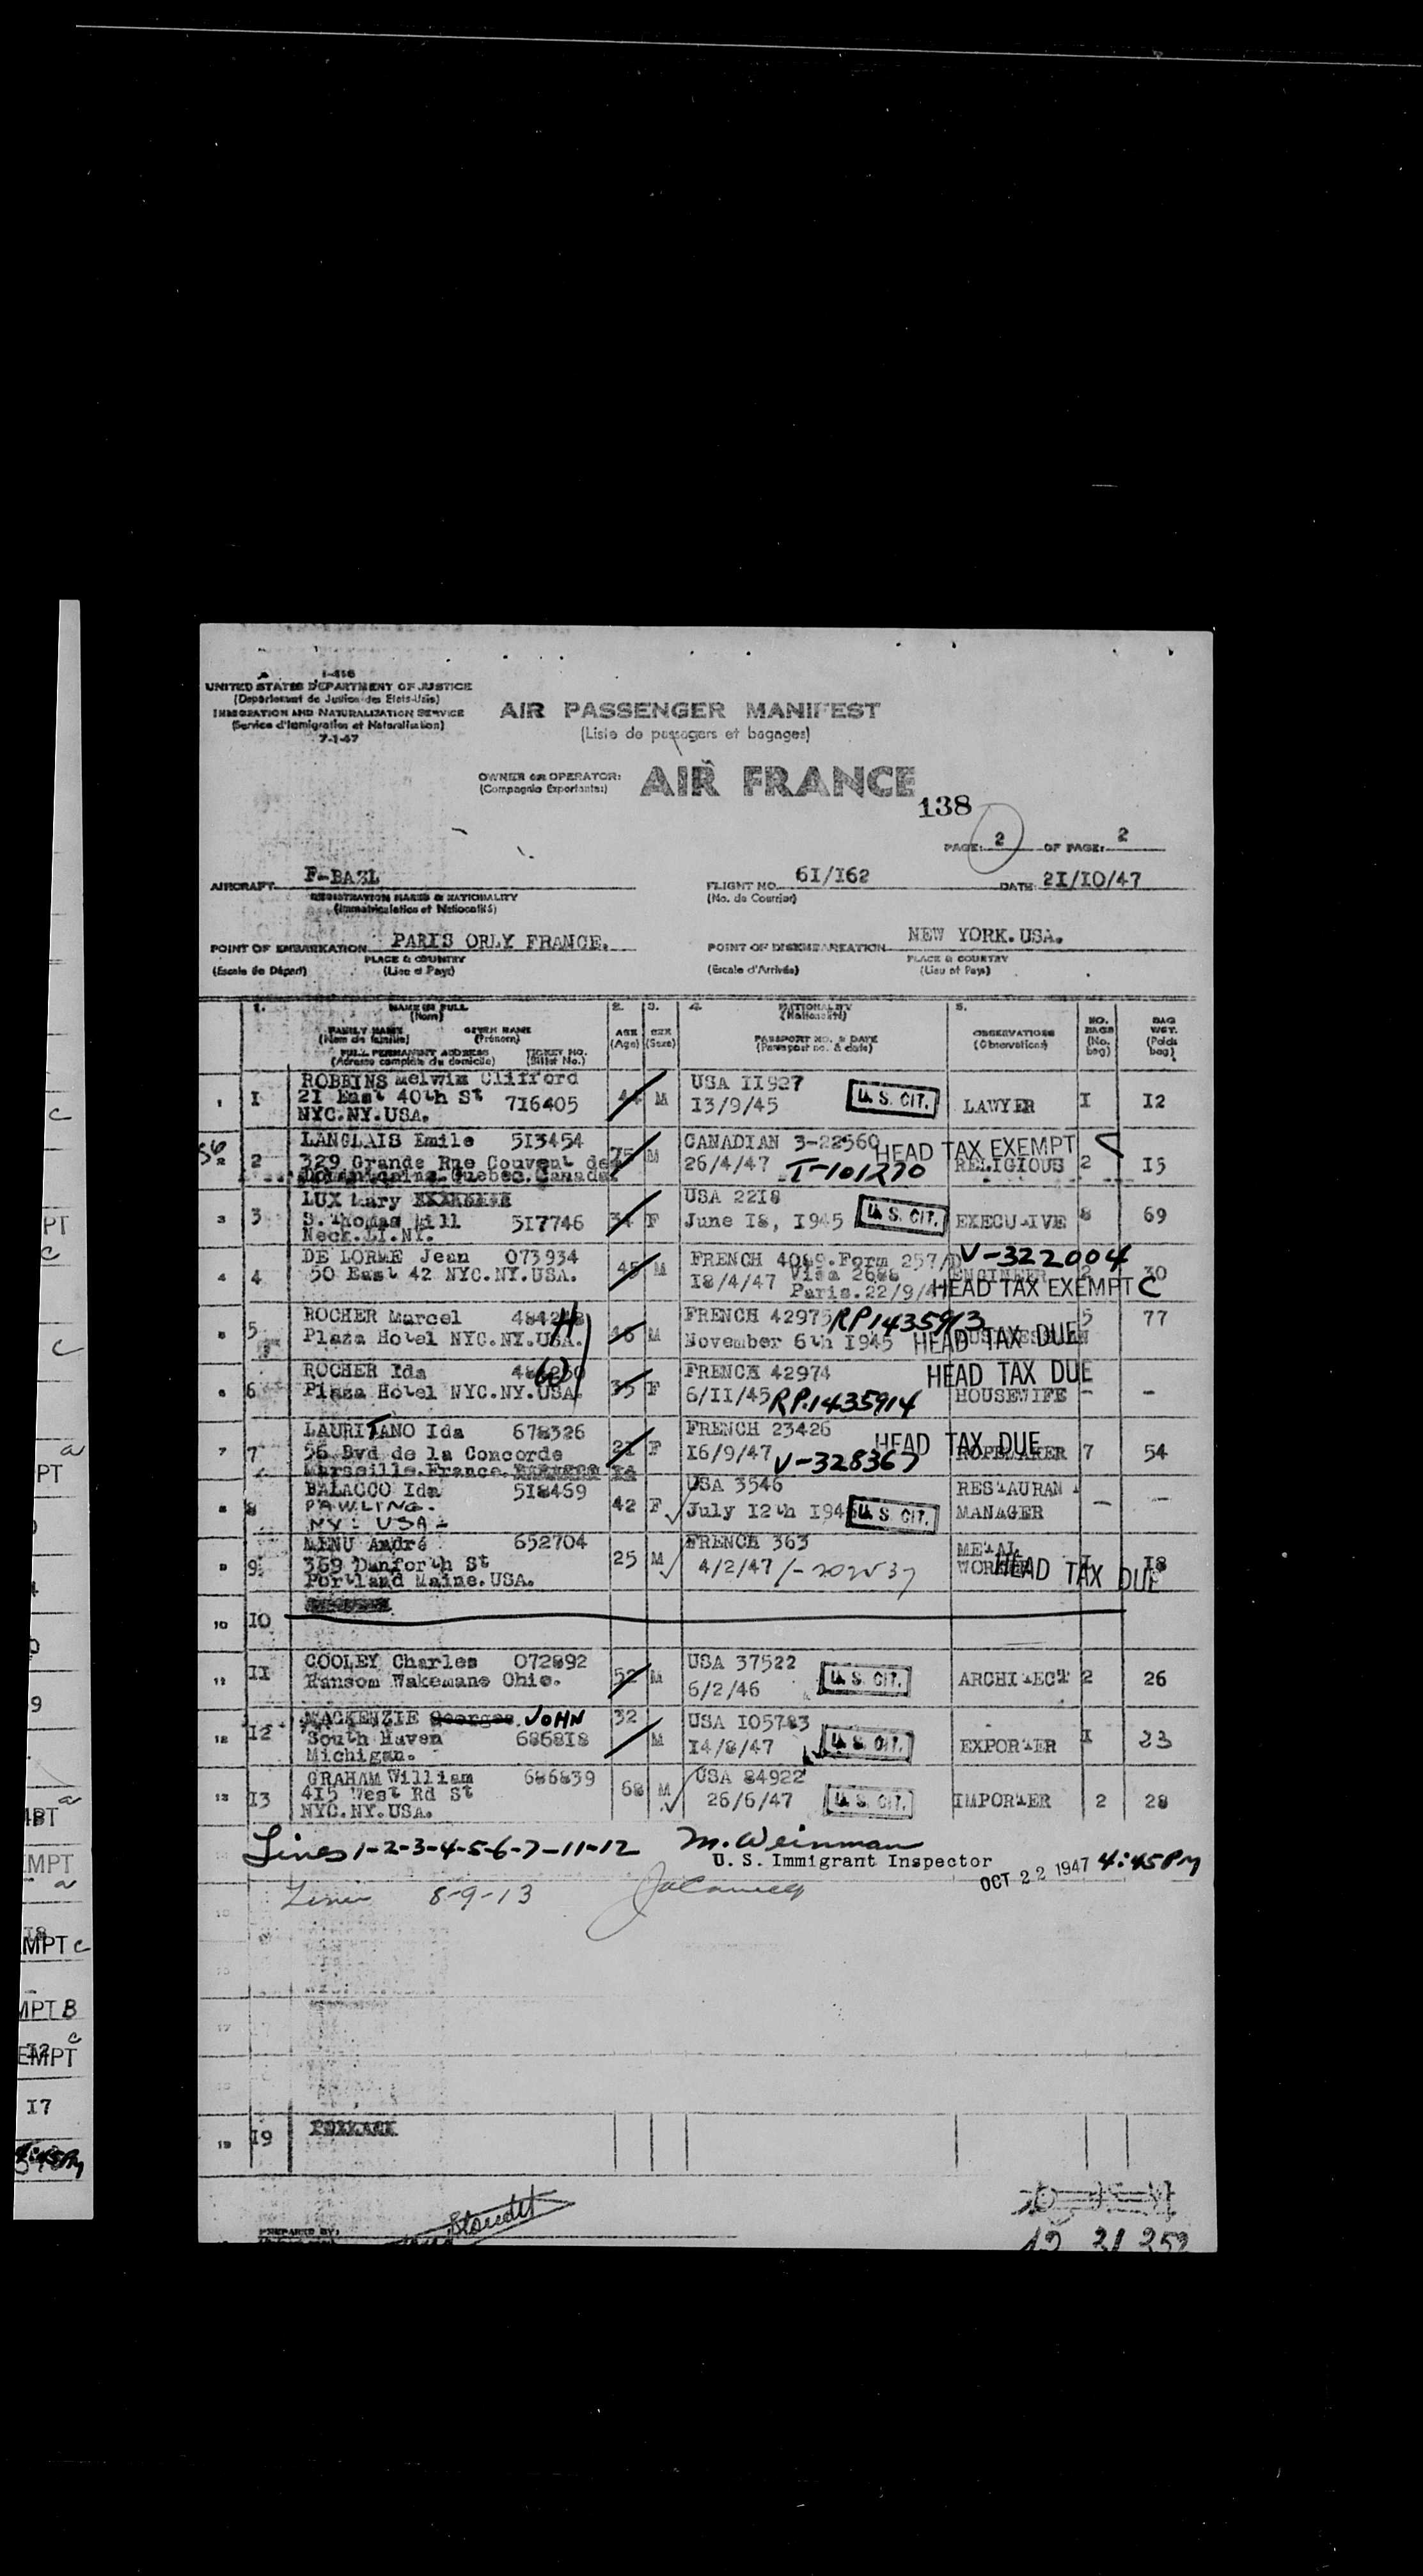 I-416
UNITED STATES DEPARTMENT OF JUSTICE
(Departement de Justice des Etats-Unis)
IMMIGRATION AND NATURALIZATION SERVICE
(Service d'Immigration et Naturalisation)
7-1-47
AIR PASSENGER MANIFEST
(Liste de passagers et bagages)
OWNER OR OPERATOR:
(Compagnie Exportante:)
AIR FRANCE
138
PAGE: 2 OF PAGE: 2
AIRCRAFT F-BAZL
REGISTRATION MARKS & NATIONALITY
(Immatriculation et Nationalité)
FLIGHT NO. 61/162
(No. de Courrier)
DATE: 21/10/47
POINT OF EMBARKATION PARIS ORLY FRANCE.
PLACE & COUNTRY
(Escale de Départ) (Lieu et Pays)
POINT OF DISEMBARKATION NEW YORK.USA.
PLACE & COUNTRY
(Escale d'Arrivée) (Lieu et Pays)
1. NAME IN FULL
(Nom)
FAMILY NAME GIVEN NAME
(Nom de famille) (Prénom)
FULL PERMANENT ADDRESS TICKET NO.
(Adresse complète du domicile) (Billet No.)
2. AGE
(Age)
3. SEX
(Sexe)
4. NATIONALITY
(Nationalité)
PASSPORT NO. & DATE
(Passeport no. & date)
5. OBSERVATIONS
(Observations)
NO. BAGS
(No. bag)
BAG WGT.
(Poids bag)
1 I ROBBINS Melwin Clifford 44 M USA II927 I I2
21 East 40th St 716405 I3/9/45 U. S. CIT. LAWYER
NYC.NY.USA.
56
2 2 LANGLAIS Emile 5I3454 75 M CANADIAN 3-22560 HEAD TAX EXEMPT C
329 Grande Rue Couvent des 26/4/47 T-101270 RELIGIOUS 2 I5
Quebec.Canada.
3 3 LUX Mary 34 F USA 22I8
S.Thomas Hill 5I7746 June I8, I945 U. S. CIT. EXECUTIVE 8 69
Neck.LI.NY.
4 4 DE LORME Jean 073934 45 M FRENCH 4089.Form 257/D V-322004
50 East 42 NYC.NY.USA. I8/4/47 Visa 2688 ENGINEER 2 30
Paris.22/9/4 HEAD TAX EXEMPT C
5 5 ROCHER Marcel H 46 M FRENCH 42975 RP1435913 5 77
Plaza Hotel NYC.NY.USA. November 6th I945 HEAD TAX DUE
6 6 ROCHER Ida W 35 F FRENCH 42974 HEAD TAX DUE
Plaza Hotel NYC.NY.USA 6/II/45 RP.1435914 HOUSEWIFE - -
7 7 LAURITANO Ida 678326 21 F FRENCH 23426 HEAD TAX DUE
56 Bvd de la Concorde I6/9/47 V-328367 7 54
Marseille.France.
8 8 BALACCO Ida 5I8469 42 F USA 3546 RESTAURANT
PAWLING. July I2th I946 U. S. CIT. MANAGER - -
NY. USA-
9 9 MENU André 652704 25 M FRENCH 363 METAL
369 Danforth St 4/2/47 WORKER I I8
Portland Maine.USA. HEAD TAX DUE
10 IO
11 II COOLEY Charles 072892 52 M USA 37522 2 26
Ransom Wakemane Ohio. 6/2/46 U. S. CIT. ARCHITECT
12 I2 MACKENZIE Georges JOHN 32 M USA I05783 I 23
South Haven 6868I8 I4/8/47 U. S. CIT. EXPORTER
Michigan.
13 I3 GRAHAM William 686839 68 M USA 84922 2 28
4I5 West Rd St 26/6/47 U. S. CIT. IMPORTER
NYC.NY.USA.
Lines 1-2-3-4-5-6-7-11-12 M. Weinman
U. S. Immigrant Inspector OCT 22 1947 4:45 PM
Lines 8-9-13
19 I9
PREPARED BY: